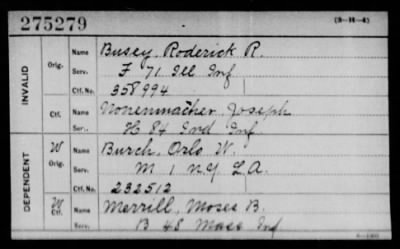 275279 (3-H-4)
INVALID Orig. Name Busey, Roderick R.
Serv. F 71 Ill Inf
Ctf. No. 358994
Ctf. Name Nonenmacher, Joseph
Ser. H 84 Ind Inf.
DEPENDENT W Orig. Name Burch, Orlo W.
Serv. M 1 N.Y. L.A.
Ctf. No. 232512
W Ctf. Name Merrill, Moses B.
Serv. B 48 Mass Inf